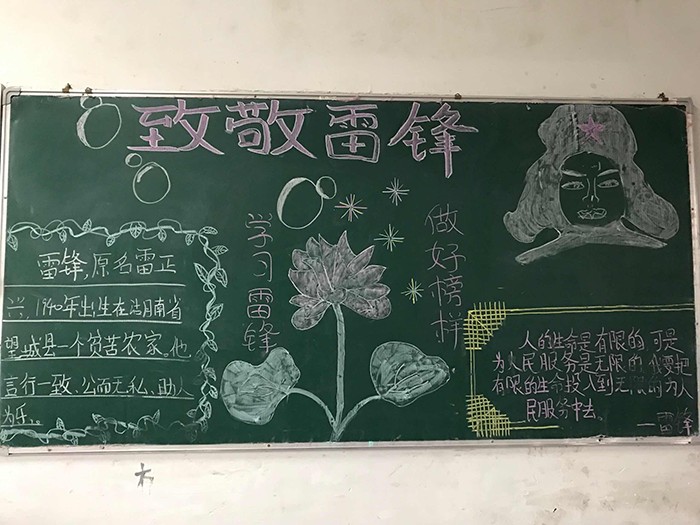 致敬雷锋
学习雷锋
做好榜样
雷锋,原名雷正
兴,1940年出生在湖南省
望城县一个贫苦农家。他
言行一致、公而无私、助人
为乐。
人的生命是有限的,可是
为人民服务是无限的,我要把
有限的生命投入到无限的为人
民服务中去。
—雷锋
木